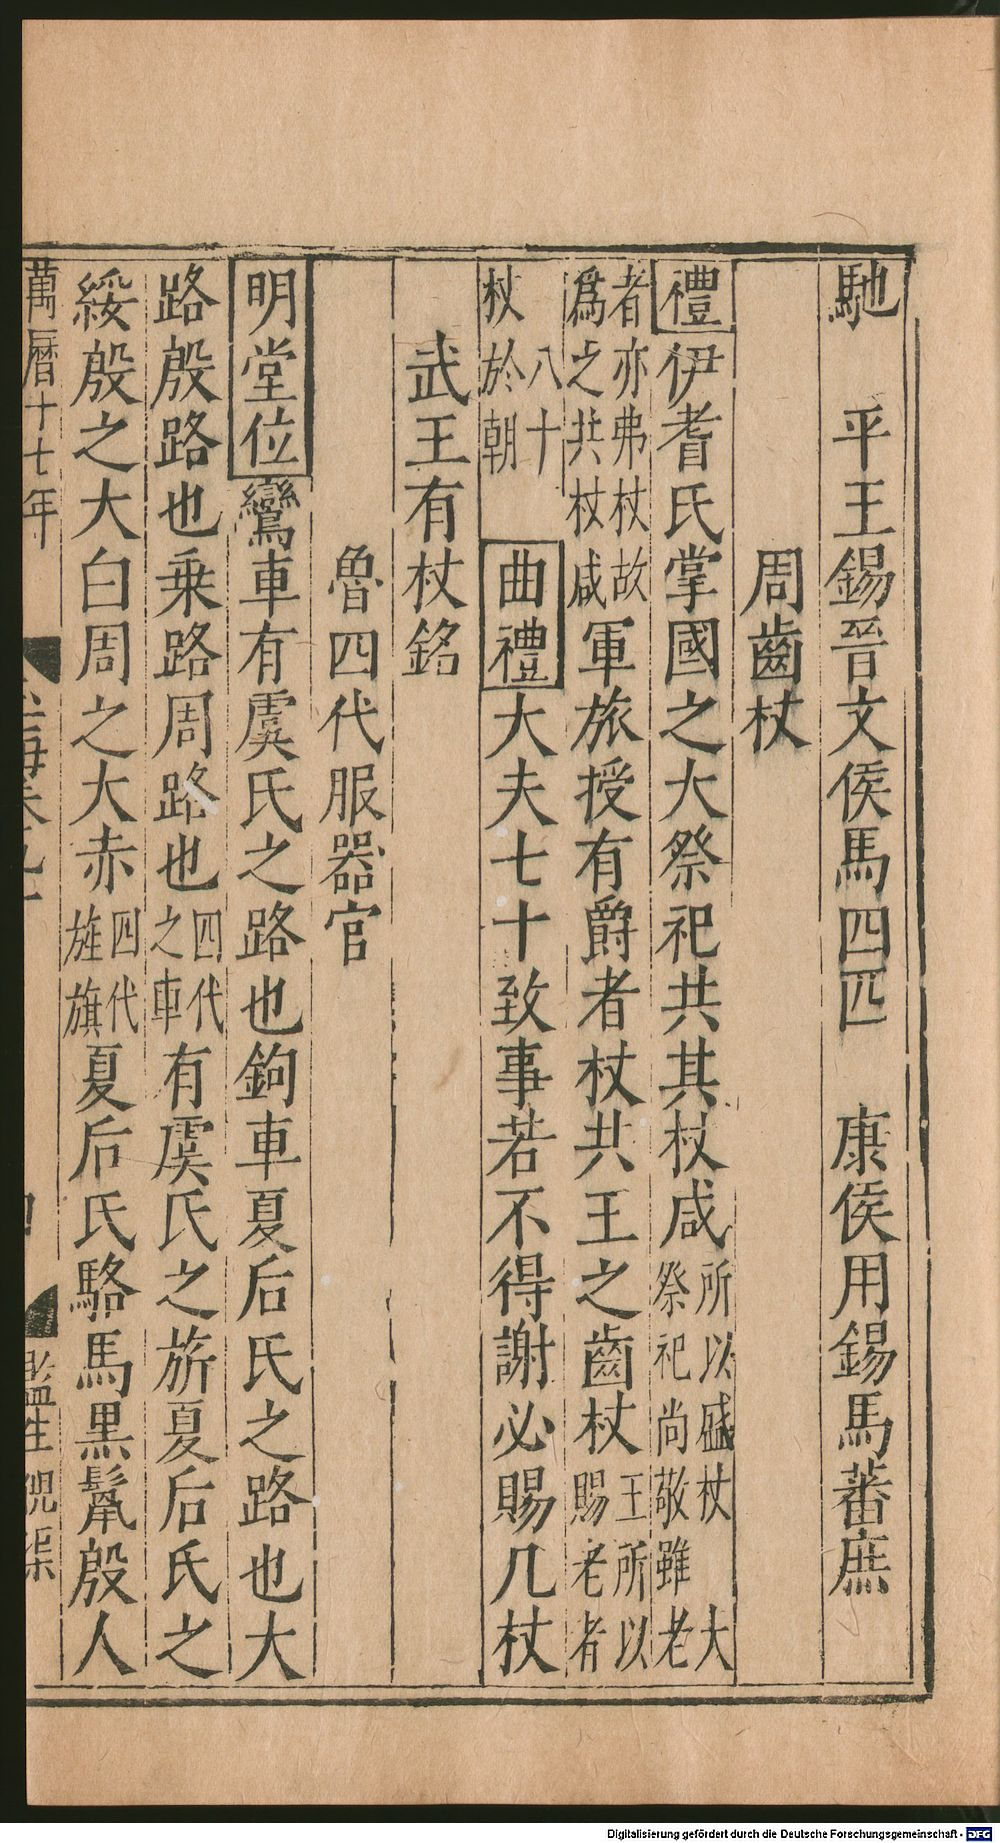 馳　平王錫晉文侯馬四匹　康侯用錫馬蕃庶
周齒杖
禮伊耆氏掌國之大祭祀共其杖咸所以盛杖　大祭祀尚敬雖老
者亦弗杖故爲之共杖咸軍旅授有爵者杖共王之齒杖王所以賜老者
八十杖於朝　曲禮大夫七十致事若不得謝必賜几杖
武王有杖銘
魯四代服器官
明堂位鸞車有虞氏之路也鉤車夏后氏之路也大
路殷路也乗路周路也四代之車有虞氏之旂夏后氏之
綏殷之大白周之大赤四代旌旗夏后氏駱馬黒鬛殷人
萬曆十七年　監生倪
Digitalisierung gefördert durch die Deutsche Forschungsgemeinschaft - DFG